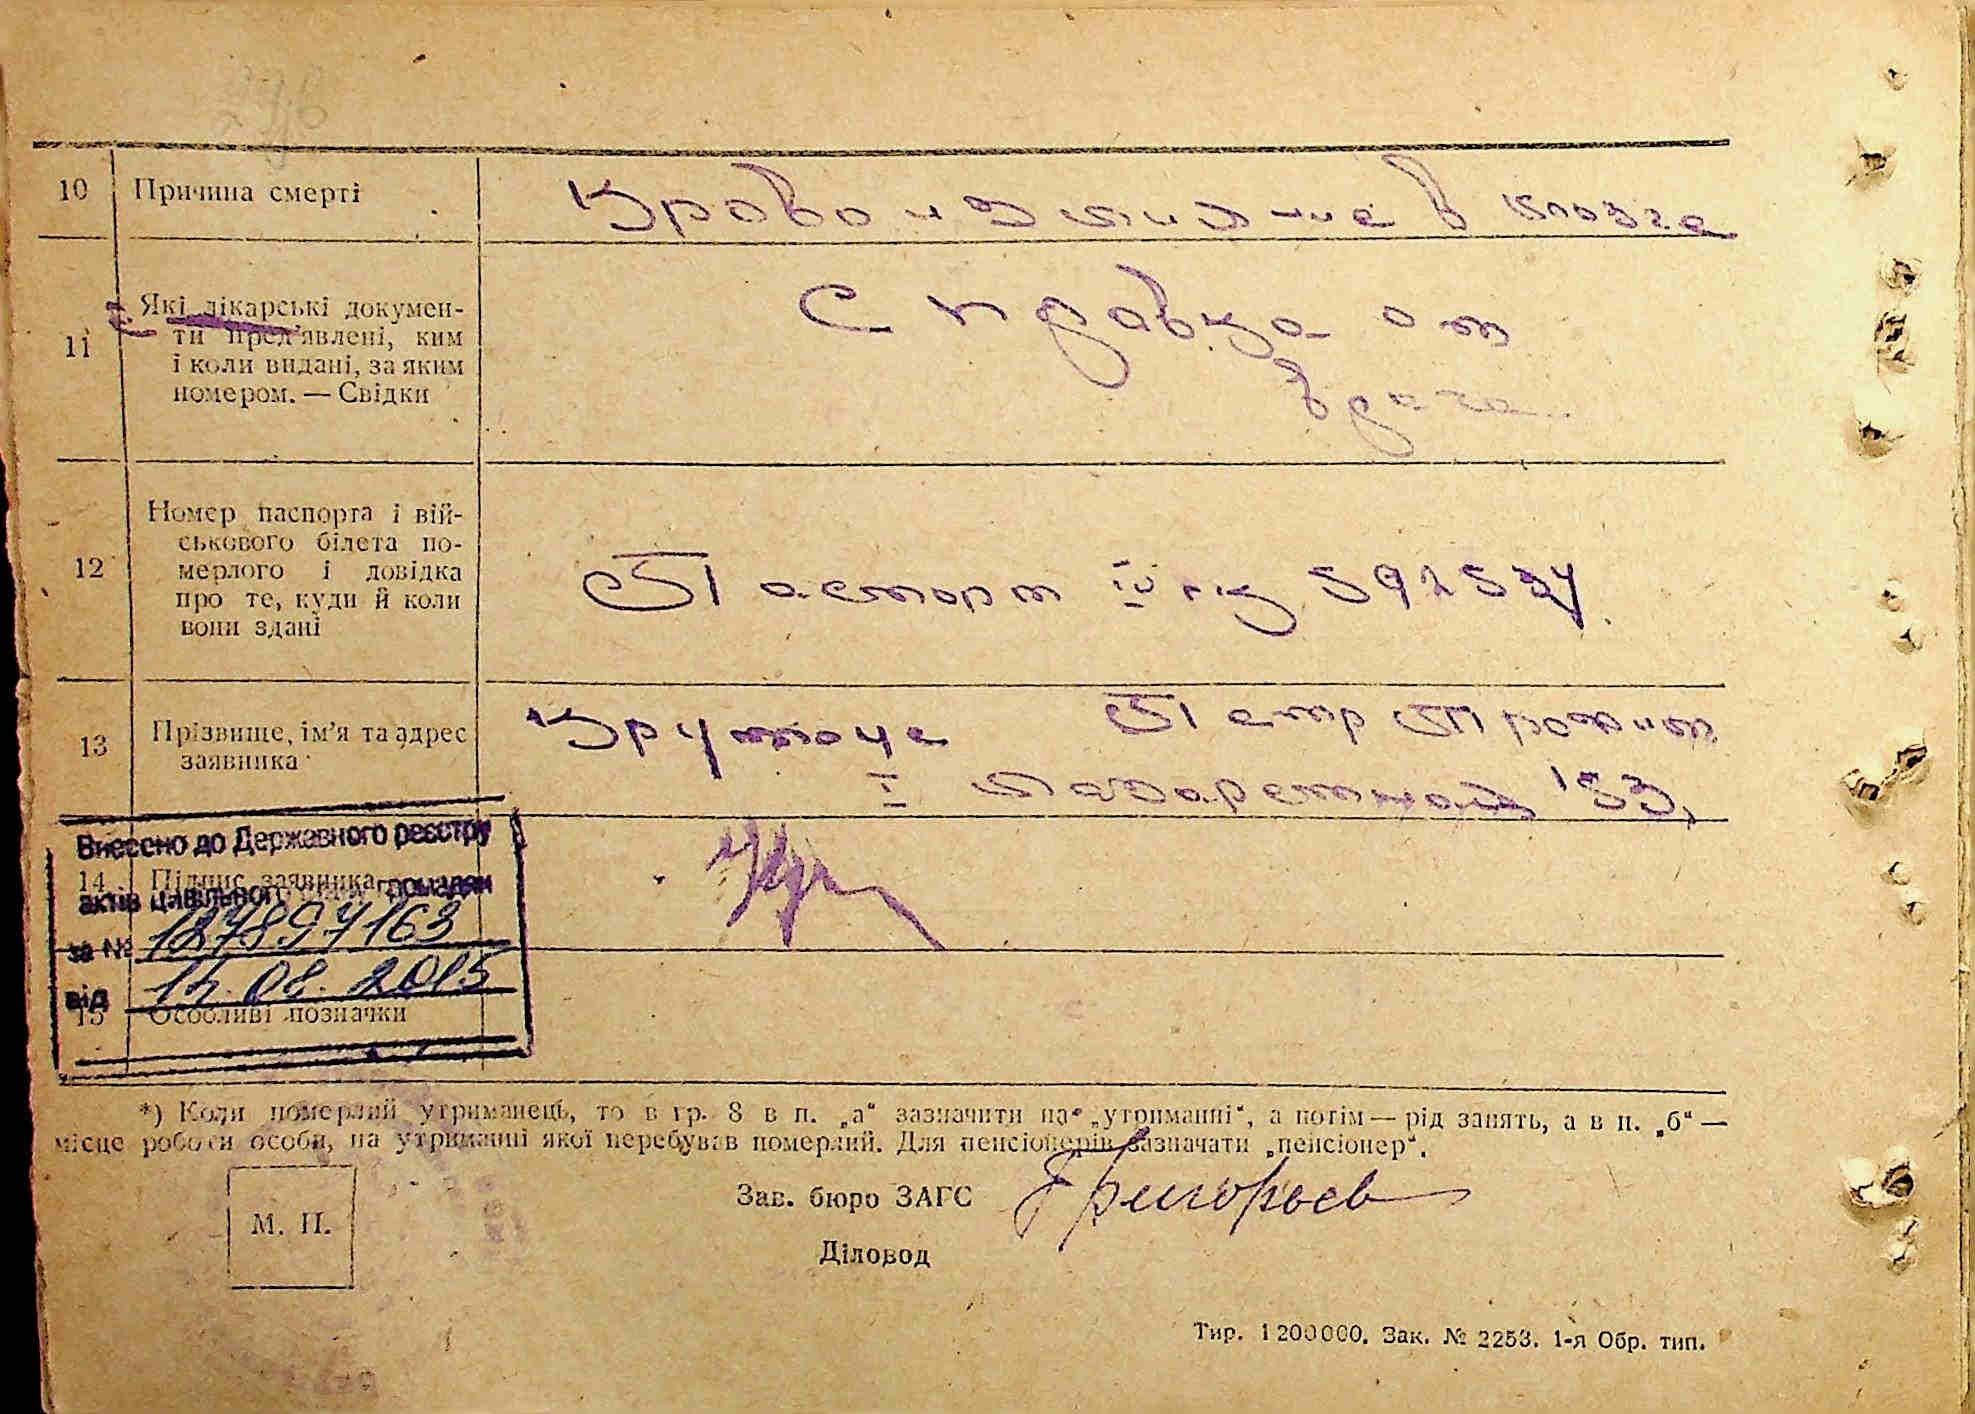 10 Причина смерті Кровоизлияние в мозг
11 Які лікарські докумен-
ти пред'явлені, ким
і коли видані, за яким
номером. — Свідки
Справка от
врача
12 Номер паспорта і вій-
ськового білета по-
мерлого і довідка
про те, куди й коли
вони здані
Паспорт IV 592537
13 Прізвище, ім'я та адрес
заявника
Петр
I Лазаретная 53,
Внесено до Державного реєстру
14 Підпис заявника
актів цивільного громадян
за № 127897163
від 14.08.2015
15 Особливі позначки
*) Коли померлий утриманець, то в гр. 8 в п. „а“ зазначити на „утриманні“, а потім — рід занять, а в п. „б“ —
місце роботи особи, на утриманні якої перебував померлий. Для пенсіонерів зазначати „пенсіонер“.
Зав. бюро ЗАГС Григорьев
М. П.
Діловод
Тир. 1200000. Зак. № 2253. 1-я Обр. тип.